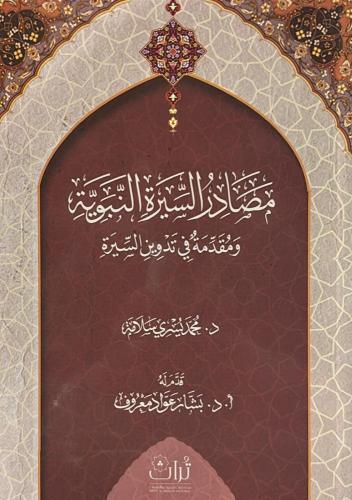 مَصَادِرُ السِّيرَةِ النَّبَوِيَّةِ
وَمُقَدِّمَةٌ فِي تَدْوِينِ السِّيرَةِ
د. محمد يسري سلامة
قدَّم له
أ. د. بشار عواد معروف
تُراث